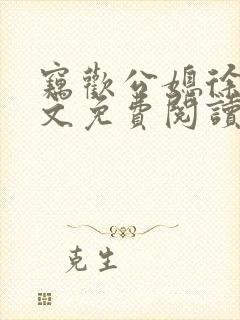 竊歡公媳徐
文免費閱讀
克生